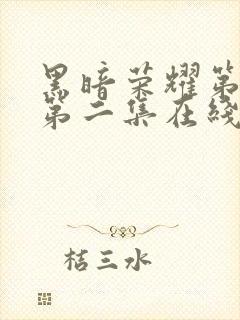 黑暗荣耀第
第二集在线
桔三水